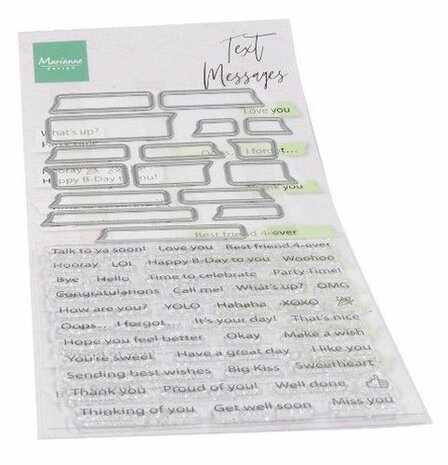 Marianne
design
Text
Messages
Love you
What's up?
I forgot...
Hooray
Happy B-Day to you!
Thank you
Best friend 4-ever
Talk to ya soon! Love you Best friend 4-ever
Hooray LOL Happy B-Day to you Woohoo
Bye Hello Time to celebrate Party Time!
Congratulations Call me! What's up? OMG
How are you? YOLO Hahaha XOXO
Oops... I forgot... It's your day! That's nice
Hope you feel better Okay Make a wish
You're sweet Have a great day I like you
Sending best wishes Big Kiss Sweetheart
Thank you Proud of you! Well done
Thinking of you Get well soon Miss you